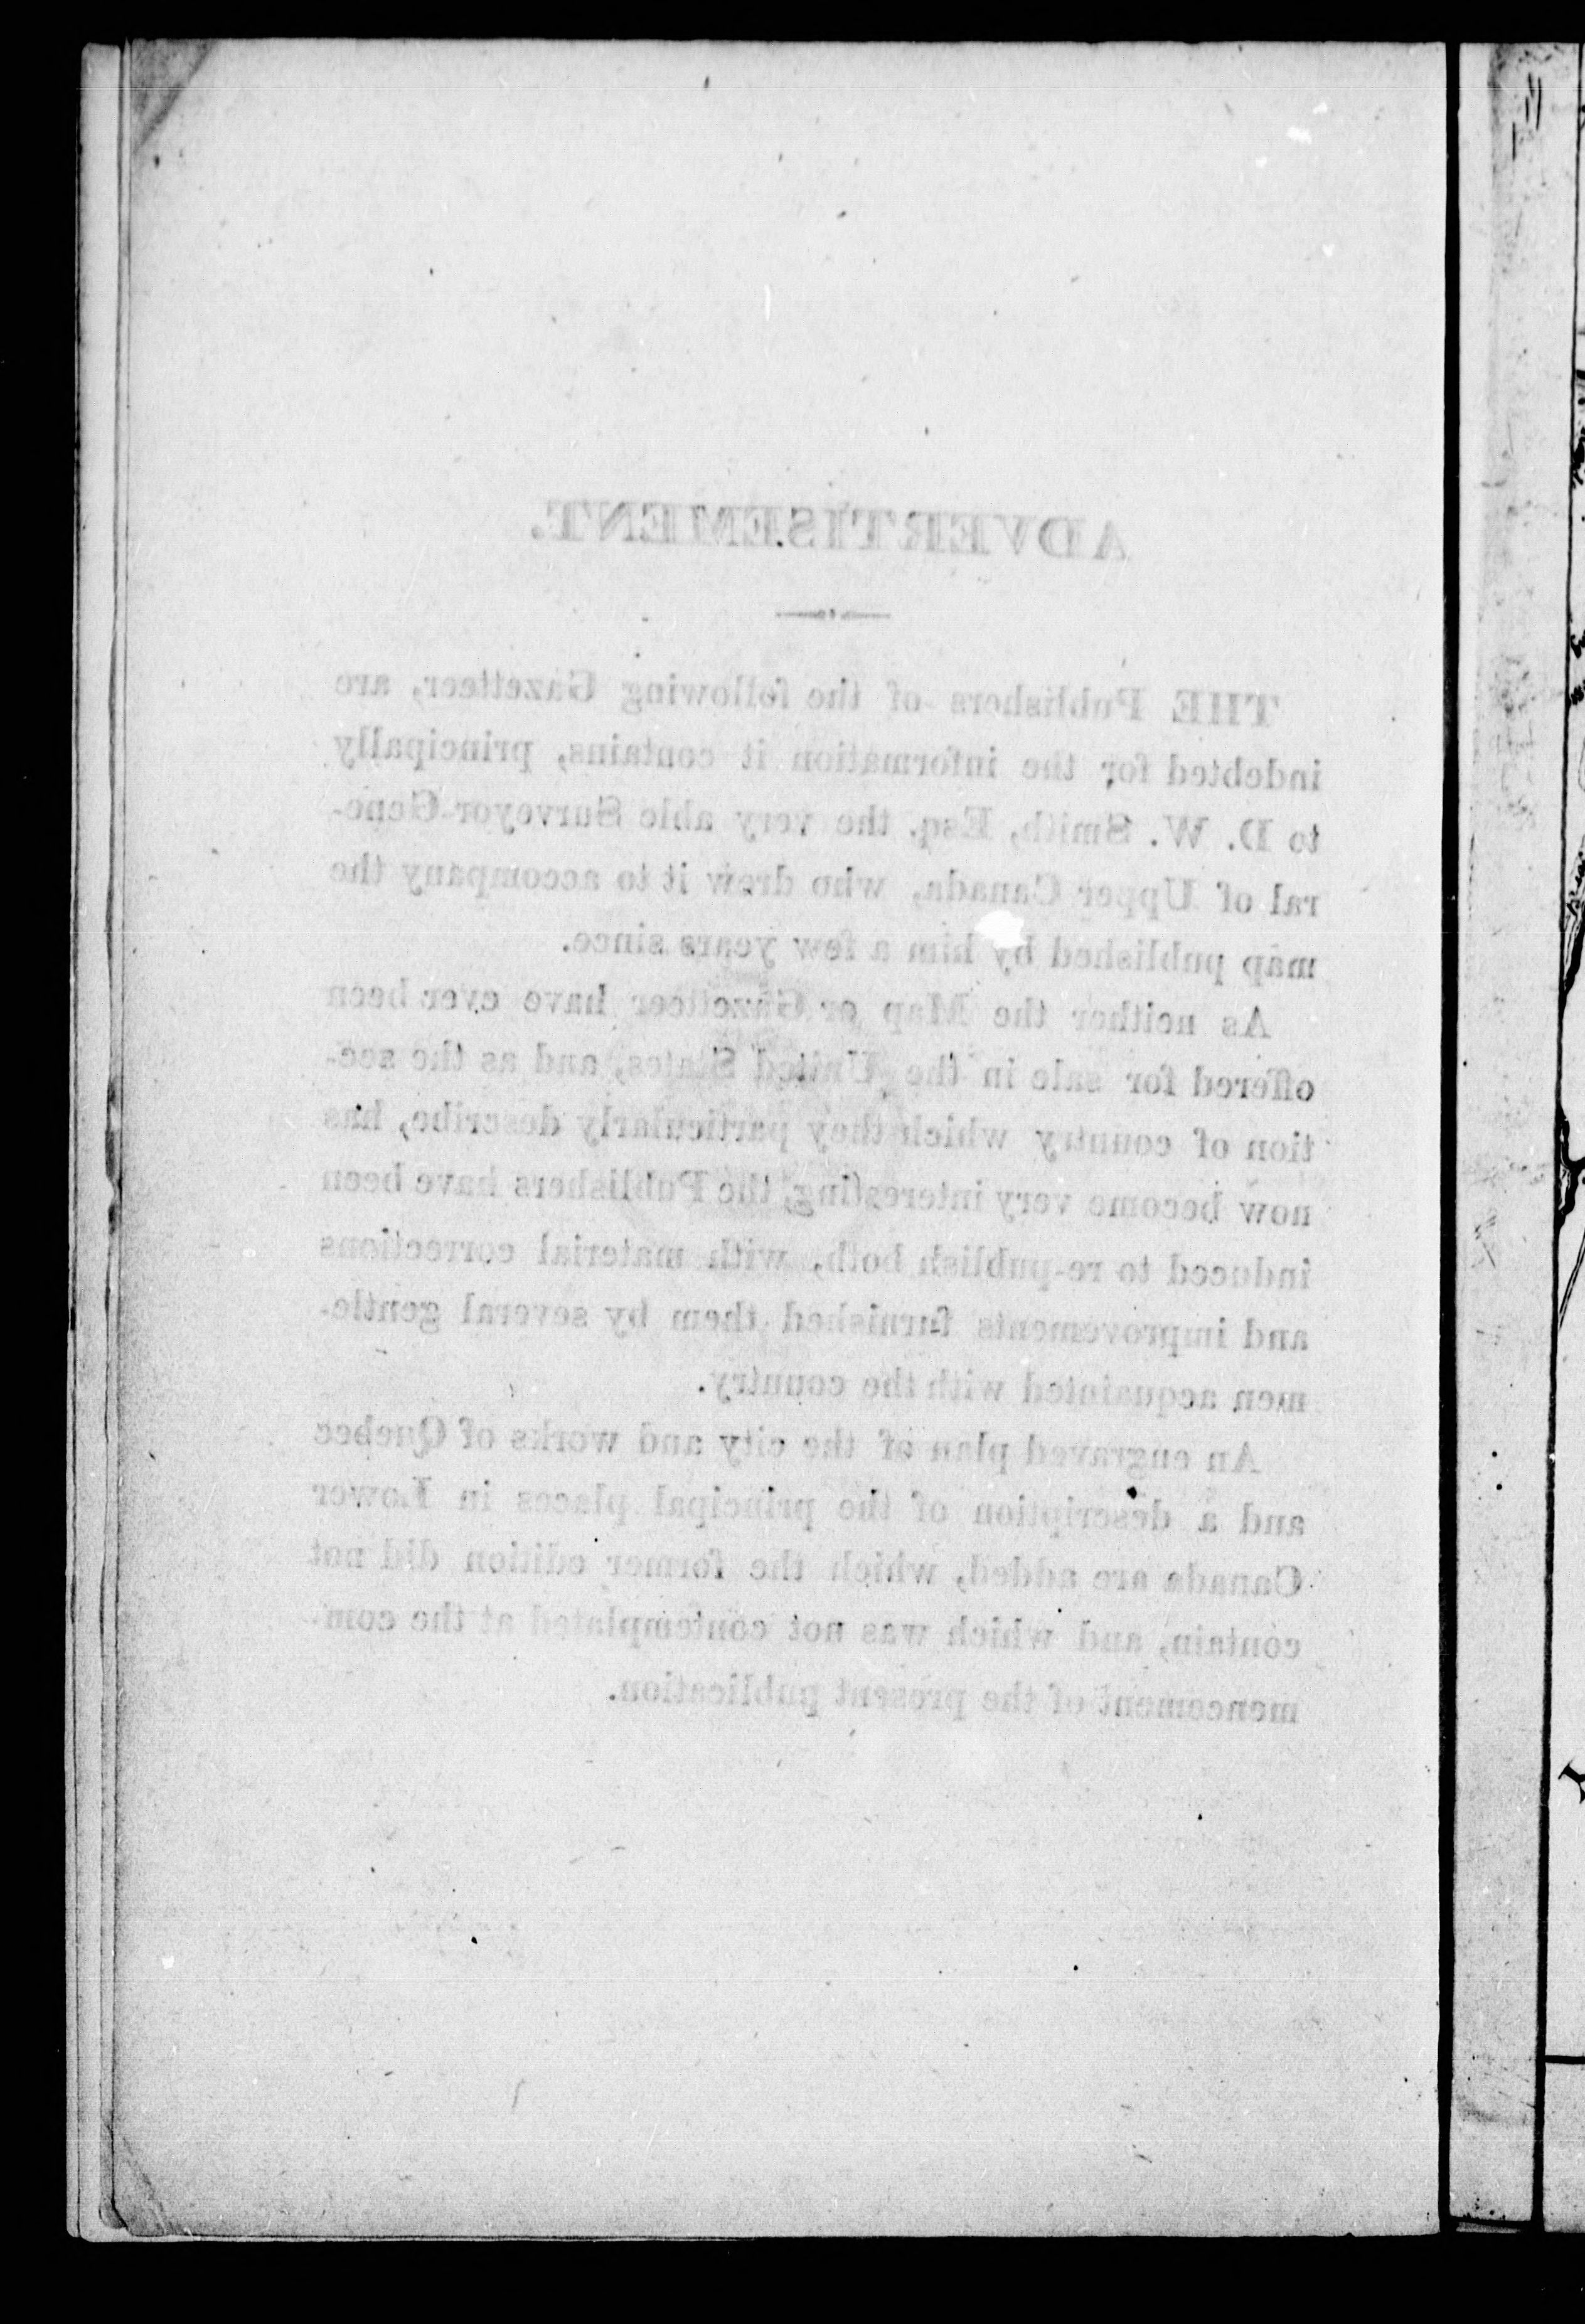 ADVERTISEMENT.
THE Publishers of the following Gazetteer, are
indebted for the information it contains, principally
to D. W. Smith, Esq. the very able Surveyor-Gene-
ral of Upper Canada, who drew it to accompany the
map published by him a few years since.
As neither the Map or Gazetteer have ever been
offered for sale in the United States, and as the sec-
tion of country which they particularly describe, has
now become very interesting, the Publishers have been
induced to re-publish both, with material corrections
and improvements furnished them by several gentle-
men acquainted with the country.
An engraved plan of the city and works of Quebec
and a description of the principal places in Lower
Canada are added, which the former edition did not
contain, and which was not contemplated at the com-
mencement of the present publication.